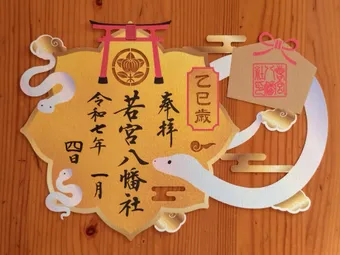 乙巳歳
奉拝
若宮八幡社
令和七年 一月
四日